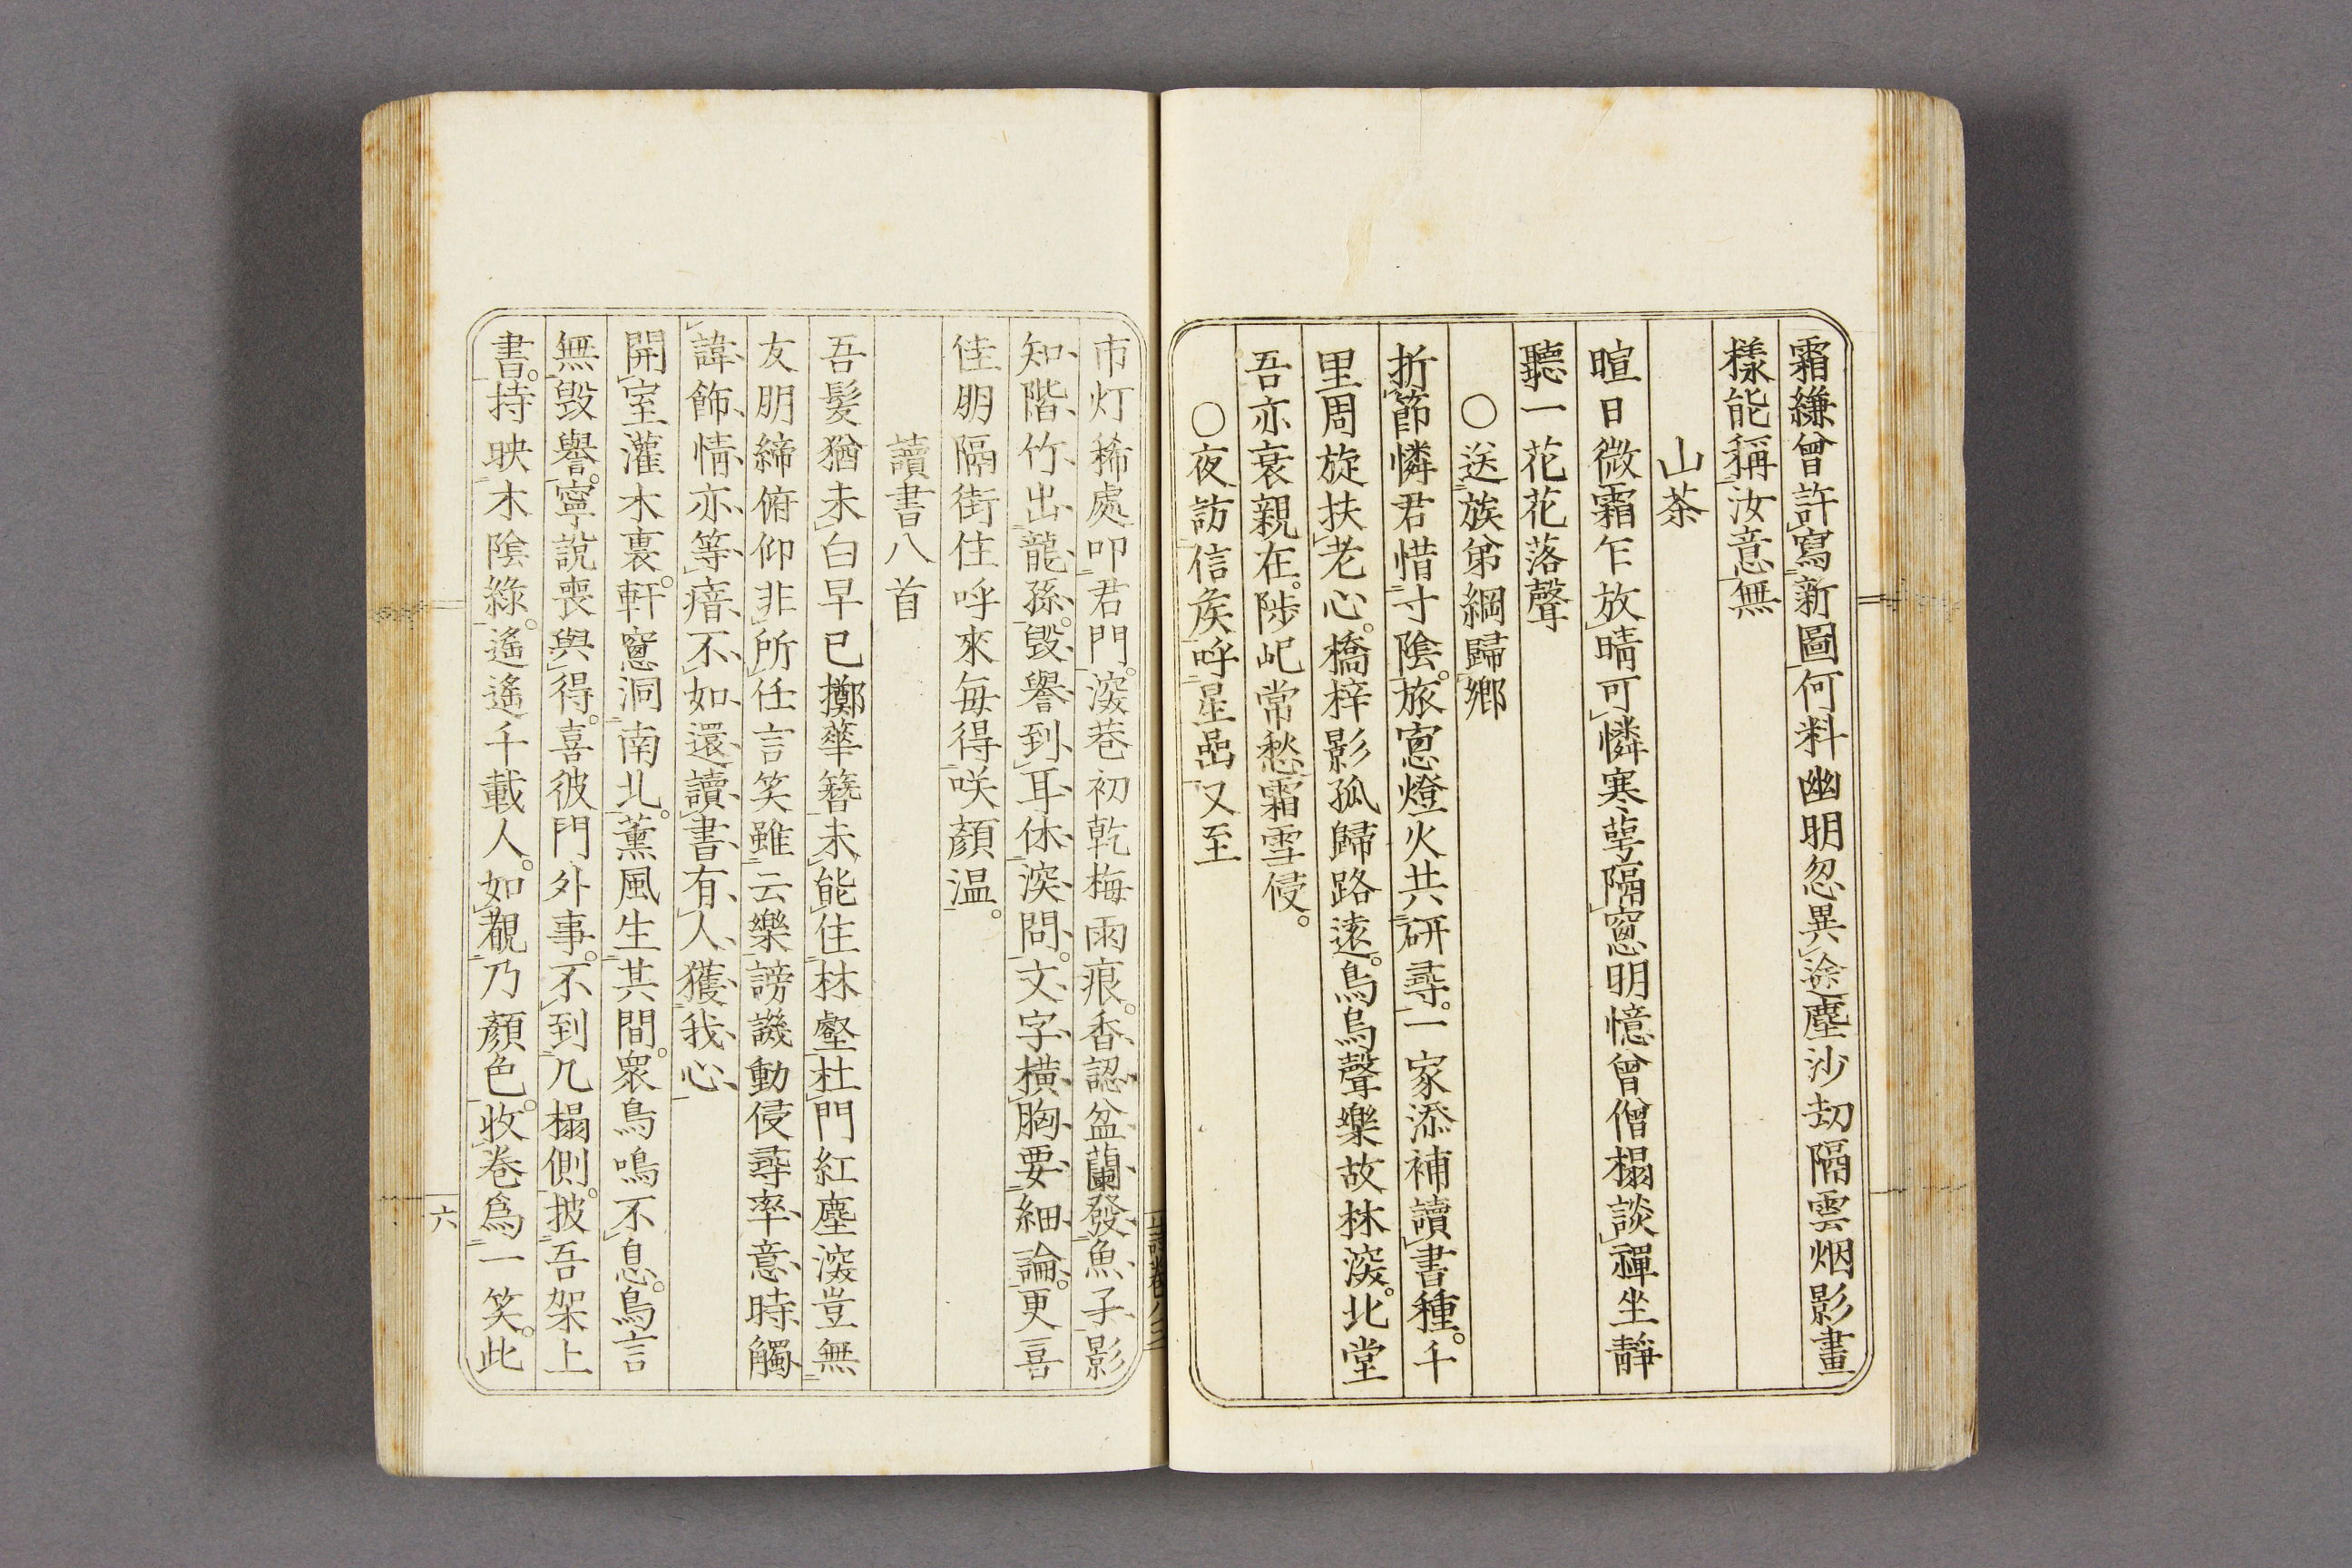 霜縑曾許寫新圖何料幽明忽異途塵沙劫隔雲烟影畫
樣能稱汝意無
山茶
暄日微霜乍放晴可憐寒萼隔窻明憶曾僧榻談禪坐靜
聽一花花落聲
○送族弟綱歸鄉
折節憐君惜寸陰。旅窻燈火共研尋。一家添補讀書種。千
里周旋扶老心。橋梓影孤歸路遠。烏烏聲樂故林深。北堂
吾亦衰親在。陟屺常愁霜雪侵。
○夜訪信矦呼星嵒又至
市灯稀處叩君門。深巷初乾梅雨痕。香認盆蘭發魚子影
知階竹出龍孫。毀譽到耳休深問。文字橫胸要細論。更喜
佳朋隔街住呼來每得咲顏温。
讀書八首
吾髮猶未白早已擲華簪未能住林壑杜門紅塵深豈無
友朋締俯仰非所任言笑雖云樂謗譏動侵尋率意時觸
諱飾情亦等瘖不如還讀書有人獲我心
開室灌木裏。軒窻洞南北。薰風生其間。衆鳥鳴不息。鳥言
無毀譽。寧說喪與得。喜彼門外事。不到几榻側。披吾架上
書。持映木陰綠。遙遙千載人。如覩乃顏色。收卷爲一笑。此
六